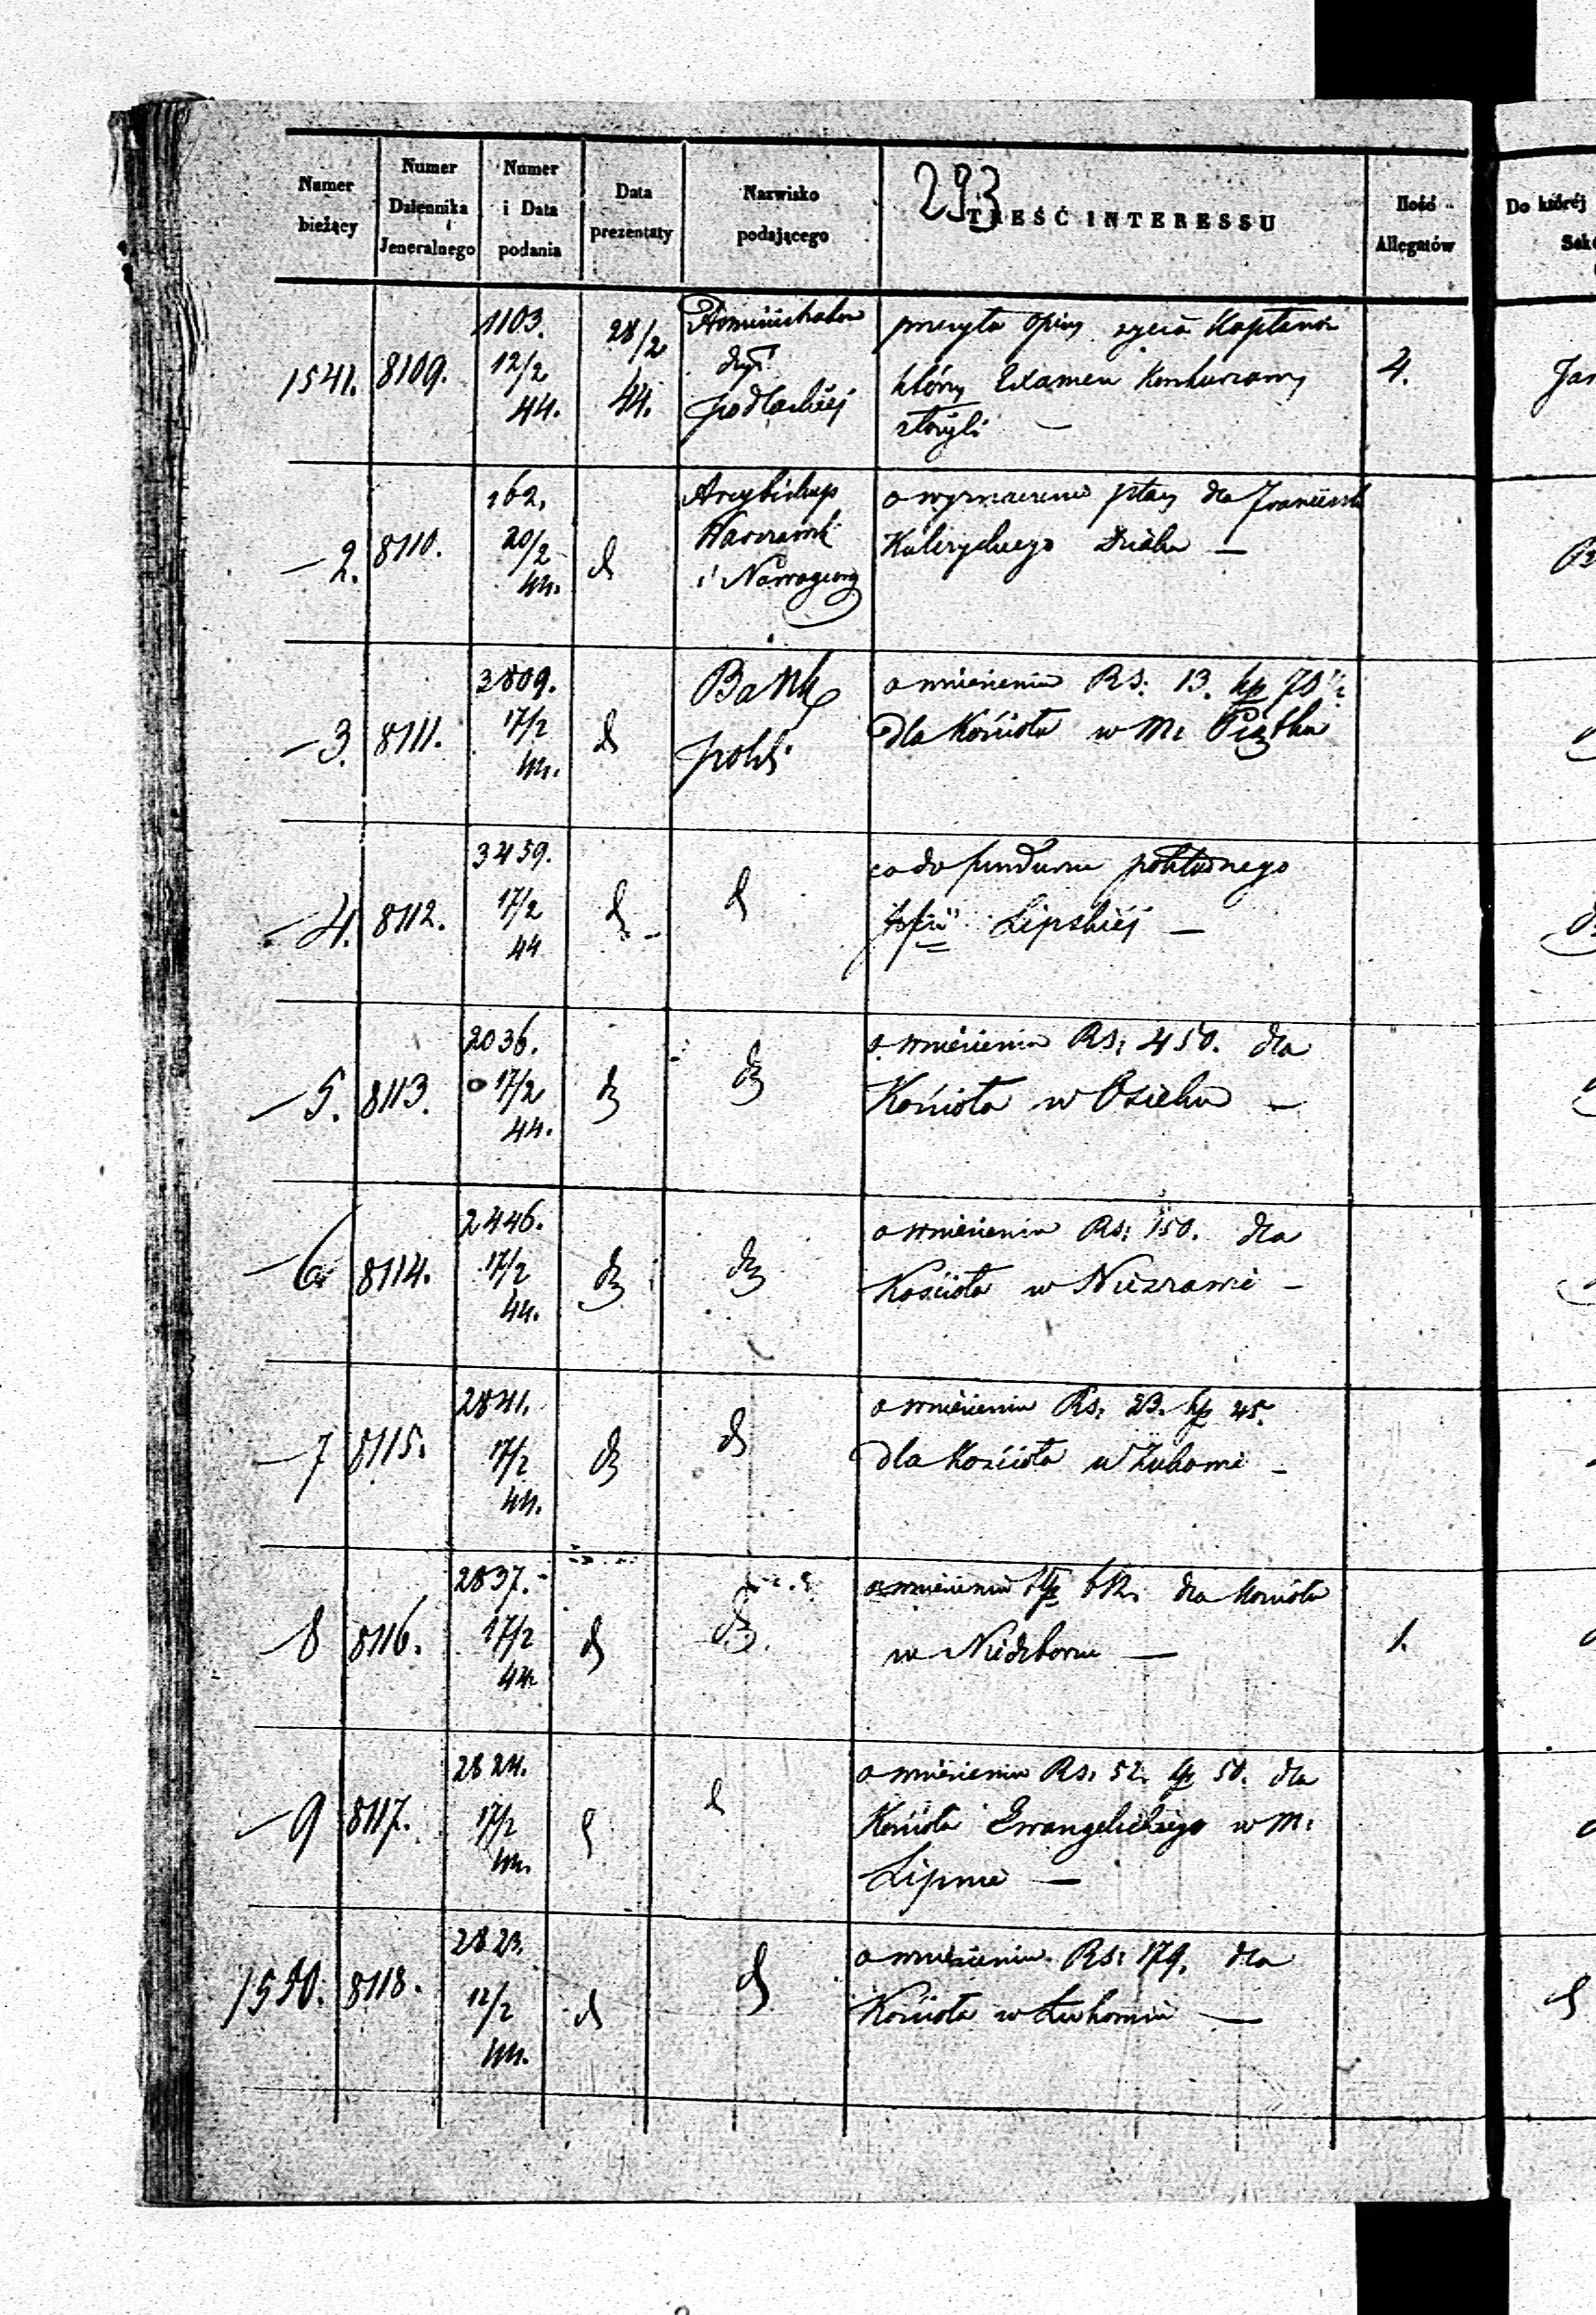 293
Numer bieżący
Numer Dziennika i Jeneralnego
Numer i Data podania
Data prezentaty
Nazwisko podającego
TREŚĆ INTERESSU
Ilość Allegatów
Do któréj
1541. 8109. 1103. 12/2 44. 28/2 44. Administrator Dyi podlaskiéj
przesyła opisy życia Kapłanów
którzy Examen Konkursowy
złożyli —
4.
— 2. 8110. 162. 20/2 44. d Arcybiskup Warszawski i Nawogeorg
o wyznaczenie płacy dla
—
— 3. 8111. 3809. 17/2 44. d Bank polski
o wniesieniu Rs: 13. kp 70 1/2
dla Kościoła w M. Piątku
— 4. 8112. 3459. 17/2 44 d d
co do funduszu pokładnego
Zofii Lipskiéj —
— 5. 8113. 2036. 17/2 44. d d
o wniesieniu Rs: 450. dla
Kościoła w Osieku —
— 6 8114. 2446. 17/2 44. d d
o wniesieniu Rs: 150. dla
Kościoła w —
— 7 8115. 2841. 17/2 44. d d
o wniesieniu Rs. 23. kp 45.
dla Kościoła w —
— 8 8116. 2837. 17/2 44 d d
o wniesieniu dla Kościoła
w —
1.
— 9 8117. 2824. 17/2 44. d d
o wniesieniu Rs. 52. kp 50. dla
Kościoła Ewangelickiego w M.
Lipnie —
1550. 8118. 2823. 12/2 44. d d
o wniesieniu Rs: 179. dla
Kościoła w —
d